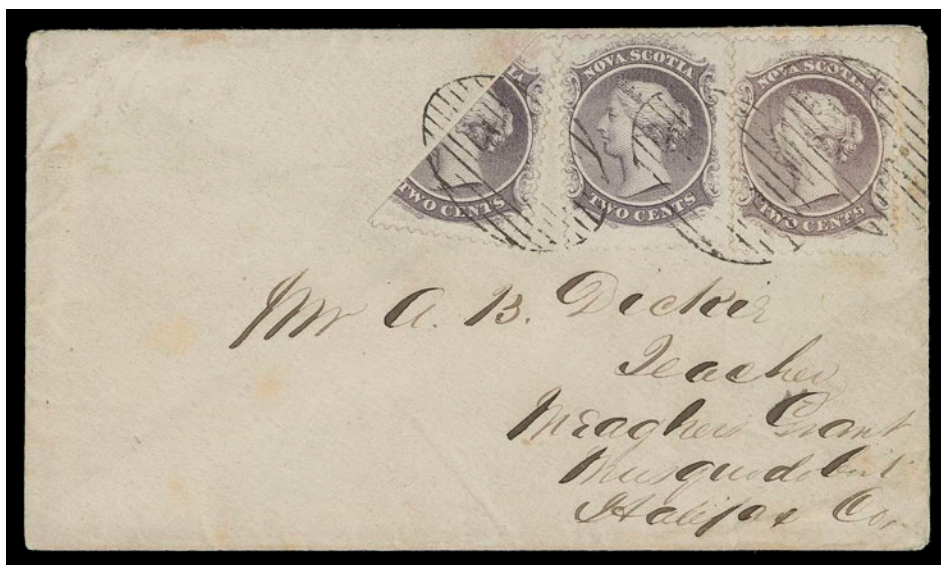 LIA
TWO CENTS
NOVA SCOTIA
TWO CENTS
NOVA SCOTIA
TWO CENTS
Mr A. B. Dickie
Teacher
Meaghers Grant
Musquodobit
Halifax Co,